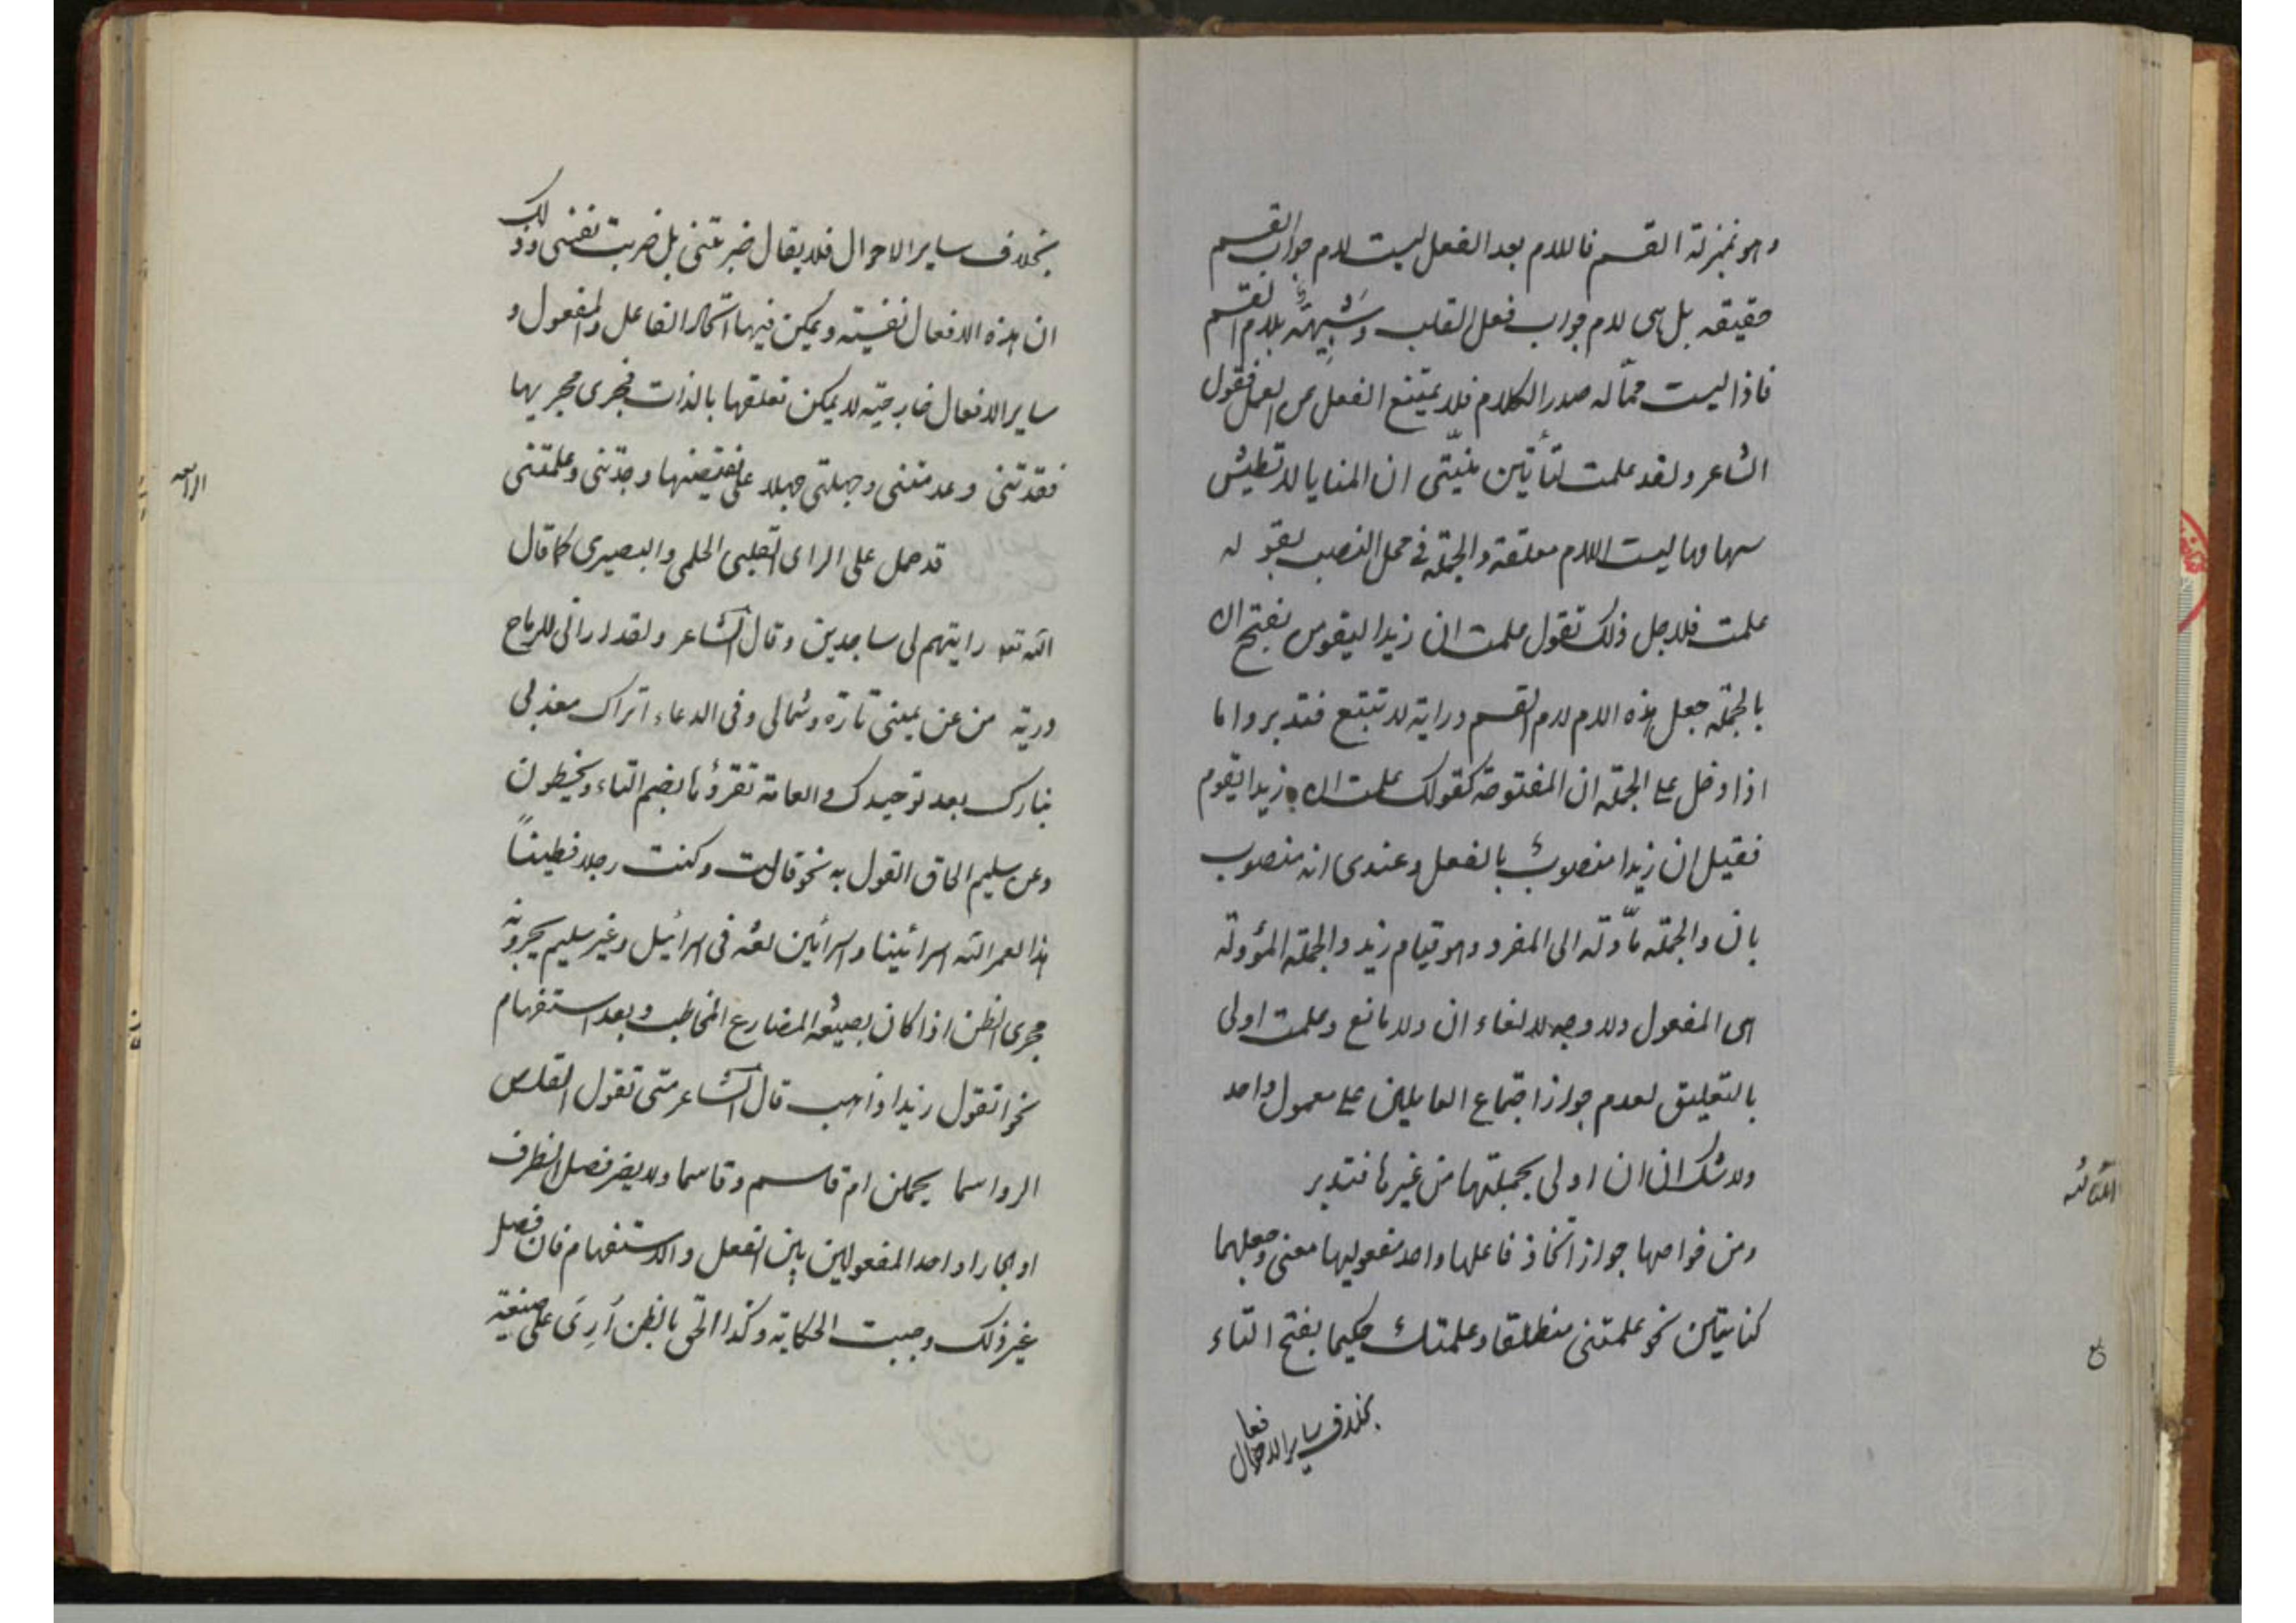 وهو بمنزلة القسم فاللام بعد الفعل ليست لام جواب القسم
حقيقه بل هى لام جواب فعل القلب وشبيهة بلام القسم
فاذا ليست مماله صدر الكلام فلا يمتنع الفعل من العمل فقول
الشاعر ولقد علمت لتأتين منيّتى ان المنايا لا تطيش
سهامها ليست اللام معلقة والجملة فى محل النصب بقوله
علمت فلاجل ذلك تقول علمت ان زيدا ليقومن بفتح ان
بالجملة جعل هذه اللام لام القسم دراية لا تتبع فتدبر واما
اذا دخل على الجملة ان المفتوحة كقولك علمت ان زيدا يقوم
فقيل ان زيدا منصوب بالفعل وعندى انه منصوب
بان والجملة مأولة الى المفرد وهو قيام زيد والجملة المؤولة
هى المفعول ولا وجه لالغاء ان ولا مانع وعلمت اولى
بالتعليق لعدم جواز اجتماع العاملين على معمول واحد
ولا شك ان ان اولى بجملتها من غيرها فتدبر
الثالثه
ومن خواصها جواز اتخاذ فاعلها واحد مفعوليها معنى وجعلهما
كنايتين نحو علمتنى منطلقا وعلمتك حكيما بفتح التاء
بخلاف ساير الافعال
بخلاف ساير الاحوال فلا يقال ضربتنى بل ضربت نفسى وذلك
ان هذه الافعال نفسية ويمكن فيها اتحاد الفاعل والمفعول و
ساير الافعال خارجية لا يمكن تعلقها بالذات فجرى مجريها
فقدتنى وعدمتنى وجهلتى جهلا على نقيضها وجدتنى وعلمتنى
الرابعه
قد حمل على الراى القلبى الحلمى والبصيرى كما قال
الله تعه رايتهم لى ساجدين وقال الشاعر ولقد ارانى للرماح
درية من عن يمينى تارة وشمالى وفى الدعاء اتراك معذبى
بنارك بعد توحيدك والعامة تقرؤها بضم التاء ويخطون
وعن سليم الحاق القول به نحو قالت وكنت رجلا فطينًا
هذا لعمر الله اسرائينا واسرائين لغة فى اسرائيل وغير سليم يجرونه
مجرى الظن اذا كان بصيغة المضارع المخاطب وبعد استفهام
نحو اتقول زيدا ذاهب قال الشاعر متى تقول القلص
الرواسما يحملن ام قاسم وقاسما ولا يضر فصل الظرف
او الجار او احد المفعولين بين الفعل والاستفهام فان فصل
غير ذلك وجبت الحكاية وكذا الحق بالظن اُرِىَ على صيغة